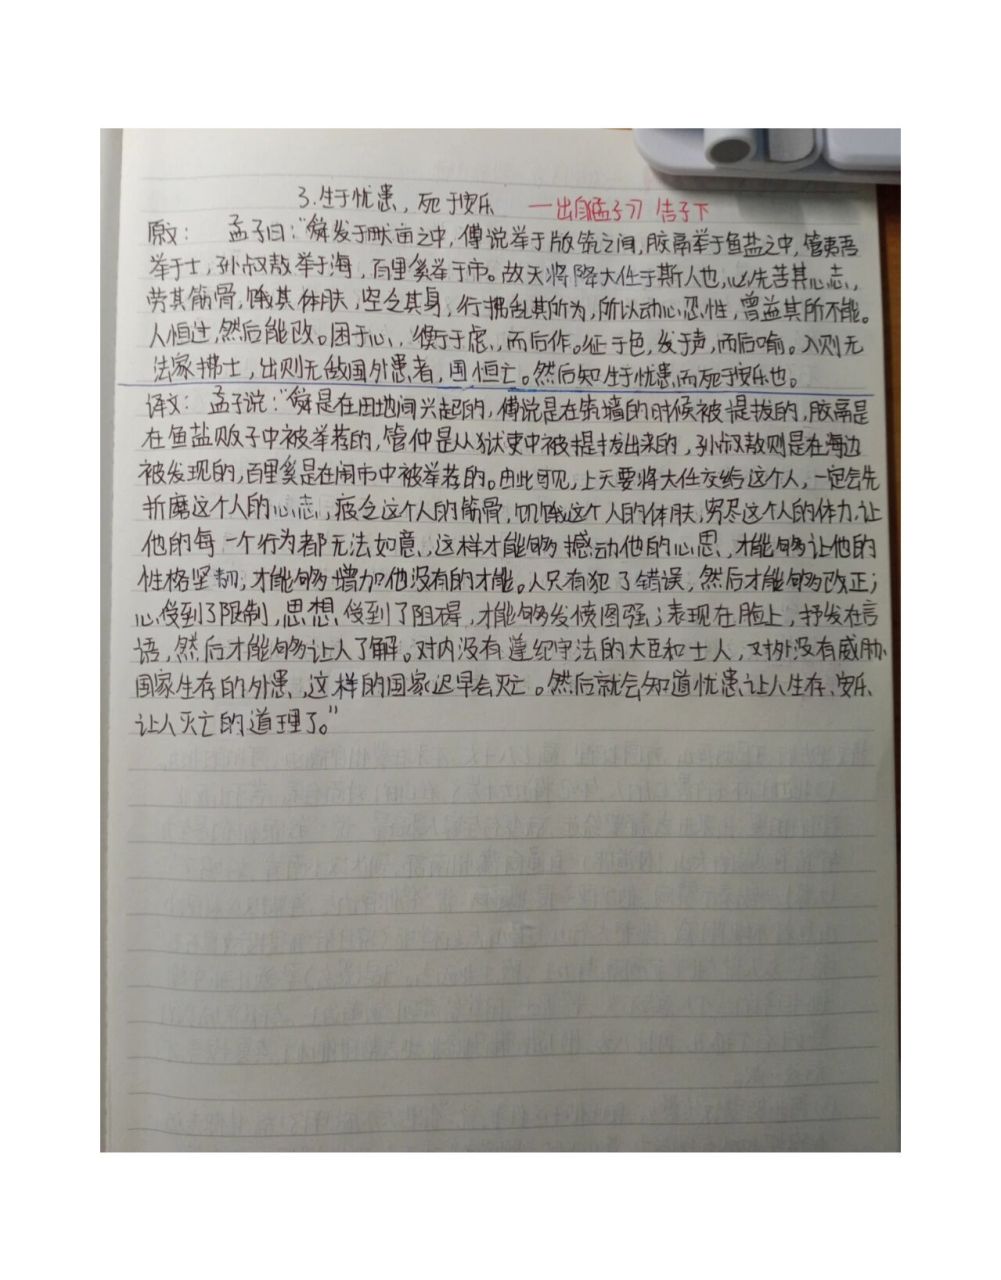 3.生于忧患，死于安乐 —出自《孟子》 告子下
原文： 孟子曰：“舜发于畎亩之中，傅说举于版筑之间，胶鬲举于鱼盐之中，管夷吾
举于士，孙叔敖举于海，百里奚举于市。故天将降大任于斯人也，必先苦其心志，
劳其筋骨，饿其体肤，空乏其身，行拂乱其所为，所以动心忍性，曾益其所不能。
人恒过，然后能改。困于心，衡于虑，而后作。征于色，发于声，而后喻。入则无
法家拂士，出则无敌国外患者，国恒亡。然后知生于忧患，而死于安乐也。
译文： 孟子说：“舜是在田地间兴起的，傅说是在筑墙的时候被提拔的，胶鬲是
在鱼盐贩子中被举荐的，管仲是从狱吏中被提拔出来的，孙叔敖则是在海边
被发现的，百里奚是在闹市中被举荐的。由此可见，上天要将大任交给这个人，一定会先
折磨这个人的心志，疲乏这个人的筋骨，饥饿这个人的体肤，穷尽这个人的体力，让
他的每一个行为都无法如意，这样才能够撼动他的心思，才能够让他的
性格坚韧，才能够增加他没有的才能。人只有犯了错误，然后才能够改正；
心受到了限制，思想受到了阻碍，才能够发愤图强；表现在脸上，抒发在言
语，然后才能够让人了解。对内没有遵纪守法的大臣和士人，对外没有威胁
国家生存的外患，这样的国家迟早会灭亡。然后就会知道忧患让人生存、安乐
让人灭亡的道理了。”